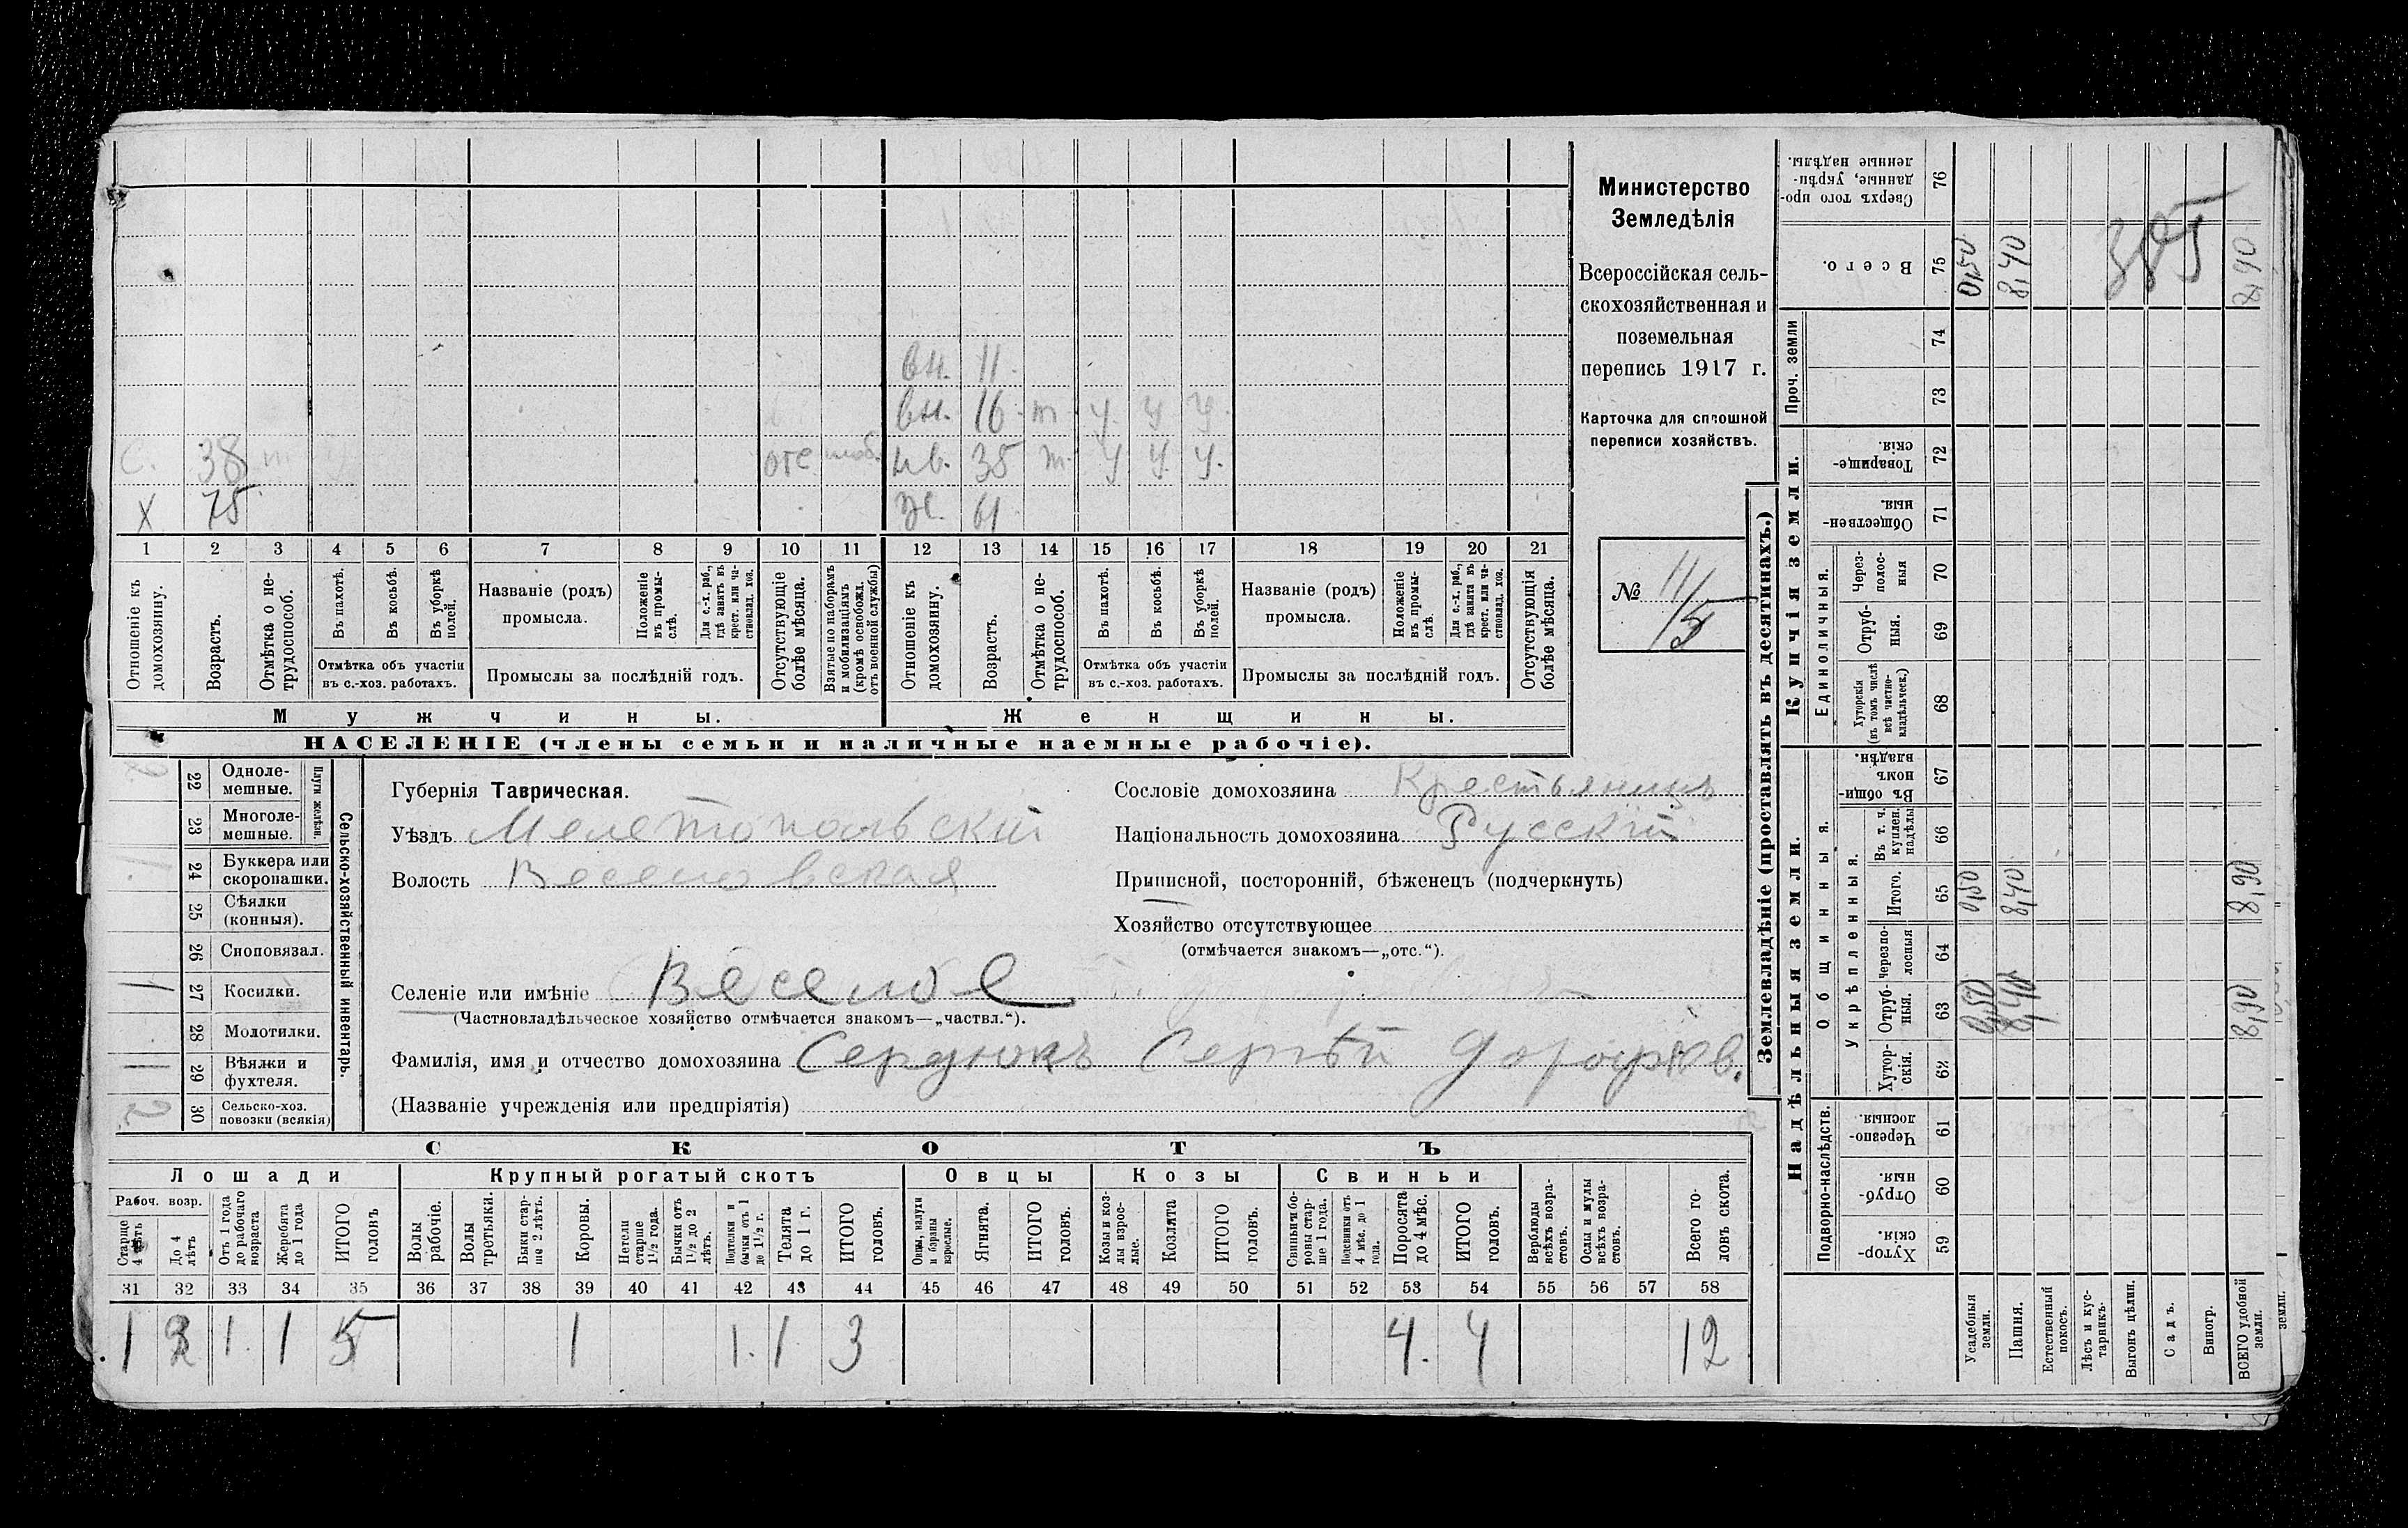 вн. 11.
вн. 16. т. у. у. у.
С. 38 т. отс моб. нв. 35 т. у у. у.
Х 75 Ж. 61
1 2 3 4 5 6 7 8 9 10 11 12 13 14 15 16 17 18 19 20 21
Отношеніе къ домохозяину.
Возрастъ.
Отмѣтка о не-трудоспособ.
Въ пахотѣ.
Въ косьбѣ.
Въ уборкѣ полей.
Отмѣтка объ участіи
въ с.-хоз. работахъ.
Названіе (родъ)
промысла.
Положеніе въ промы-слѣ.
Для с.-х. раб., гдѣ занятъ въ крест. или ча-стновлад. хоз.
Промыслы за послѣдній годъ.
Отсутствующіе болѣе мѣсяца.
Взятые по наборамъ и мобилизаціямъ (кромѣ освобожд. отъ военной службы)
Отношеніе къ домохозяину.
Возрастъ.
Отмѣтка о не-трудоспособ.
Въ пахотѣ.
Въ косьбѣ.
Въ уборкѣ полей.
Отмѣтка объ участіи
въ с.-хоз. работахъ.
Названіе (родъ)
промысла.
Положеніе въ промы-слѣ.
Для с.-х. раб., гдѣ занята въ крест. или ча-стновлад. хоз.
Промыслы за послѣдній годъ.
Отсутствующія болѣе мѣсяца.
Мужчины. Женщины.
НАСЕЛЕНІЕ (члены семьи и наличные наемные рабочіе).
Министерство
Земледѣлія
Всероссійская сель-
скохозяйственная и
поземельная
перепись 1917 г.
Карточка для сплошной
переписи хозяйствъ.
№ 11/5
Сельско-хозяйственный инвентарь.
Плуги желѣзн.
22 Одноле-мешные.
23 Многоле-мешные.
24 Буккера или скоропашки.
25 Сѣялки (конныя).
26 Сноповязал.
27 Косилки. 1
28 Молотилки.
29 Вѣялки и фухтеля. 1
30 Сельско-хоз. повозки (всякія) 2
Губернія Таврическая.
Уѣздъ Мелетопольскій
Волость Веселовская
Селеніе или имѣніе Веселое
(Частновладѣльческое хозяйство отмѣчается знакомъ—„частвл.“).
Фамилія, имя и отчество домохозяина Сердюкъ Сергѣй Дороѳѣев.
(Названіе учрежденія или предпріятія)
Сословіе домохозяина Крестьянинъ
Національность домохозяина Русскій
Приписной, посторонній, бѣженецъ (подчеркнуть)
Хозяйство отсутствующее
(отмѣчается знакомъ—„отс.“).
СКОТЪ
Лошади Крупный рогатый скотъ Овцы Козы Свиньи
Рабоч. возр.
Старше 4 лѣтъ
До 4 лѣтъ
Отъ 1 года до рабочаго возраста
Жеребята до 1 года
ИТОГО головъ
Волы рабочіе.
Волы третьяки.
Быки стар-ше 2 лѣтъ.
Коровы.
Нетели старше 1½ года.
Бычки отъ 1½ до 2 лѣтъ.
Подтелки и бычки отъ 1 до 1½ г.
Телята до 1 г.
ИТОГО головъ.
Овцы, валухи и бараны взрослые.
Ягнята.
ИТОГО головъ.
Козы и коз-лы взрос-лые.
Козлята
ИТОГО головъ.
Свиньи и бо-ровы стар-ше 1 года.
Подсвинки отъ 4 мѣс. до 1 года.
Поросята до 4 мѣс.
ИТОГО головъ.
Верблюды всѣхъ возра-стовъ.
Ослы и мулы всѣхъ возра-стовъ.
Всего го-ловъ скота.
31 32 33 34 35 36 37 38 39 40 41 42 43 44 45 46 47 48 49 50 51 52 53 54 55 56 57 58
1 2 1. 1 5 1 1. 1 3 4. 4 12
Землевладѣніе (проставлять въ десятинахъ.)
Надѣльныя земли. Купчія земли. Проч. земли
Подворно-наслѣдств. Общинныя. Укрѣпленныя. Единоличныя.
59 Хутор-скія.
60 Отруб-ныя.
61 Черезпо-лосныя
62 Хутор-скія.
63 Отруб-ныя.
64 Черезпо-лосныя
65 Итого.
66 Въ т. ч. куплен. надѣлы
67 Въ общин-номъ владѣн.
68 Хуторскія (въ томъ числѣ всѣ частно-владѣльческ.)
69 Отруб-ныя.
70 Через-полос-ныя
71 Обществен-ныя.
72 Товарище-скія.
73
74
75 Всего.
76 Сверхъ того про-данные, укрѣп-ленные надѣлы.
Усадебныя земли. 0,50 0,50 0,50
Пашня. 8,40 8,40 8,40
Естественный покосъ.
Лѣсъ и кус-тарникъ.
Выгонъ цѣлин.
Садъ.
Виногр.
ВСЕГО удобной земли. 8,90 8,90 8,90
385
земли.